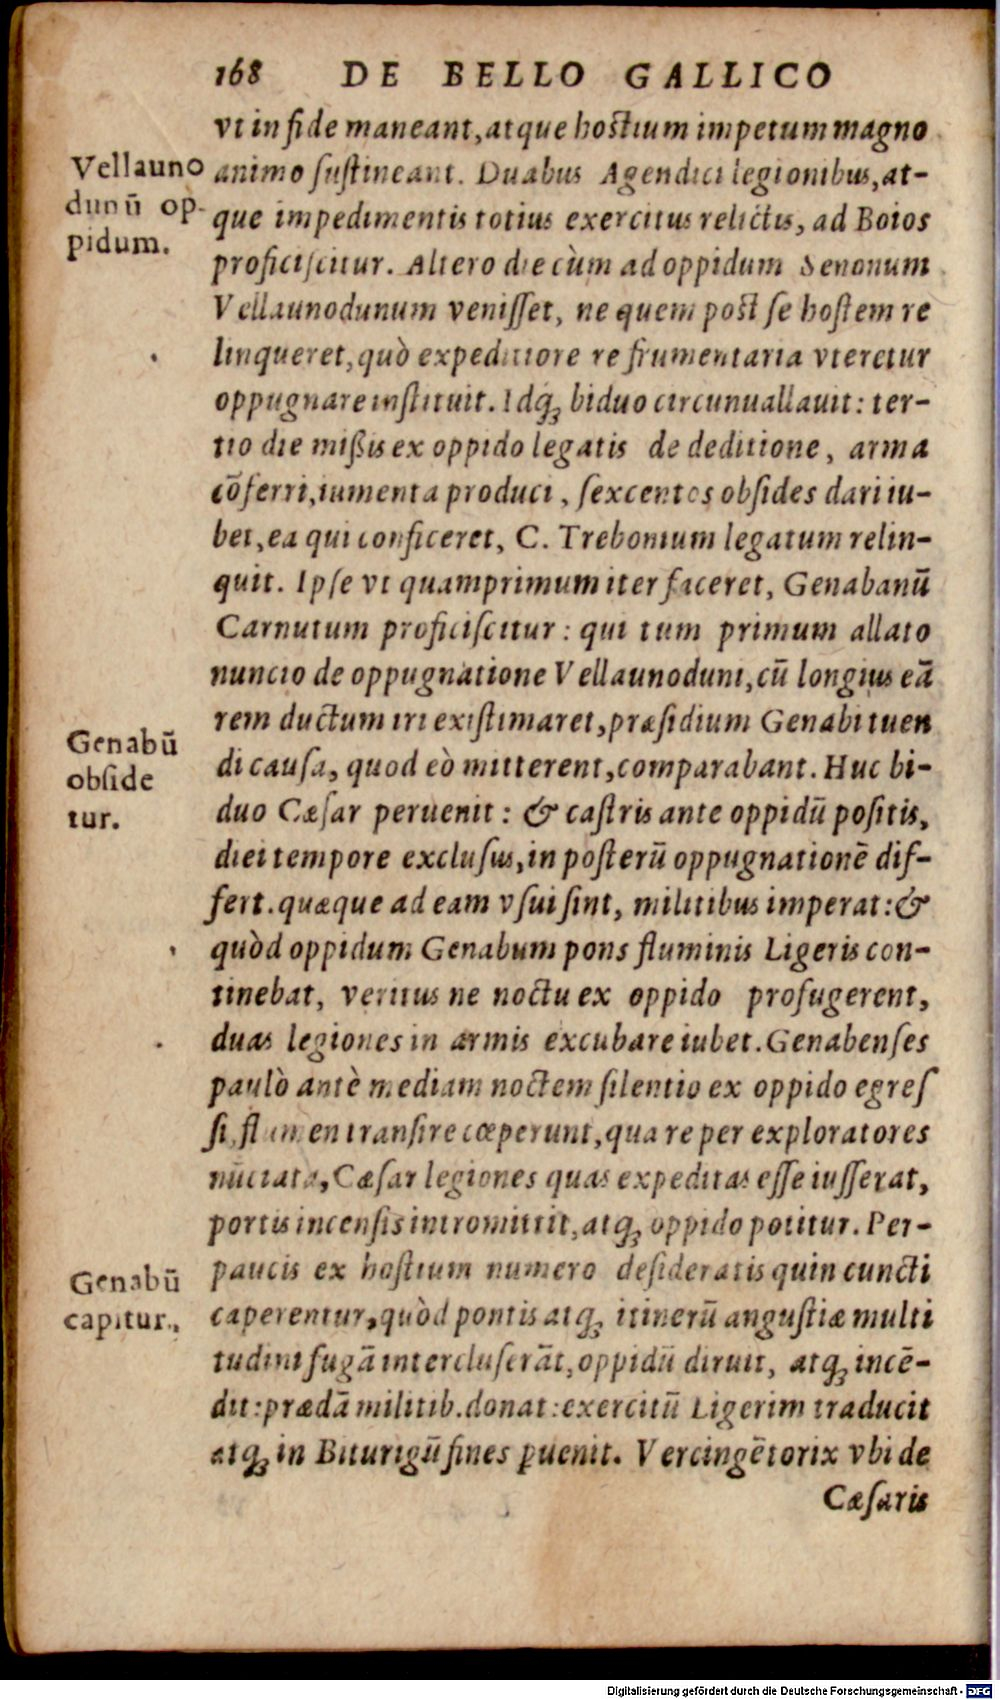 168 DE BELLO GALLICO
vt in fide maneant, atque hostium impetum magno
Vellauno
dunū op-
pidum.
animo sustineant. Duabus Agendici legionibus, at-
que impedimentis totius exercitus relictis, ad Boios
proficiscitur. Altero die cùm ad oppidum Senonum
Vellaunodunum venisset, ne quem post se hostem re
linqueret, quò expeditiore re frumentaria vteretur
oppugnare instituit. Idq́; biduo circunuallauit: ter-
tio die mißis ex oppido legatis de deditione, arma
cōferri, iumenta produci, sexcentos obsides dari iu-
bet, ea qui conficeret, C. Trebonium legatum relin-
quit. Ipse vt quamprimum iter faceret, Genabanū
Carnutum proficiscitur: qui tum primum allato
nuncio de oppugnatione Vellaunoduni, cū longius eā
rem ductum iri existimaret, præsidium Genabi tuen
Genabū
obside
tur.
di causa, quod eò mitterent, comparabant. Huc bi-
duo Cæsar peruenit: & castris ante oppidū positis,
diei tempore exclusus, in posterū oppugnationē dif-
fert. quæque ad eam vsui sint, militibus imperat: &
quòd oppidum Genabum pons fluminis Ligeris con-
tinebat, veritus ne noctu ex oppido profugerent,
duas legiones in armis excubare iubet. Genabenses
paulò antè mediam noctem silentio ex oppido egres
si, flumen transire cœperunt, qua re per exploratores
nūciata, Cæsar legiones quas expeditas esse iusserat,
portis incensis intromittit, atq; oppido potitur. Per-
Genabū
capitur.
paucis ex hostium numero desideratis quin cuncti
caperentur, quòd pontis atq; itinerū angustiæ multi
tudini fugā intercluserāt, oppidū diruit, atq; incē-
dit: prædā militib. donat: exercitū Ligerim traducit
atq; in Biturigū fines ꝑuenit. Vercingētorix vbi de
Cæsaris
Digitalisierung gefördert durch die Deutsche Forschungsgemeinschaft - DFG